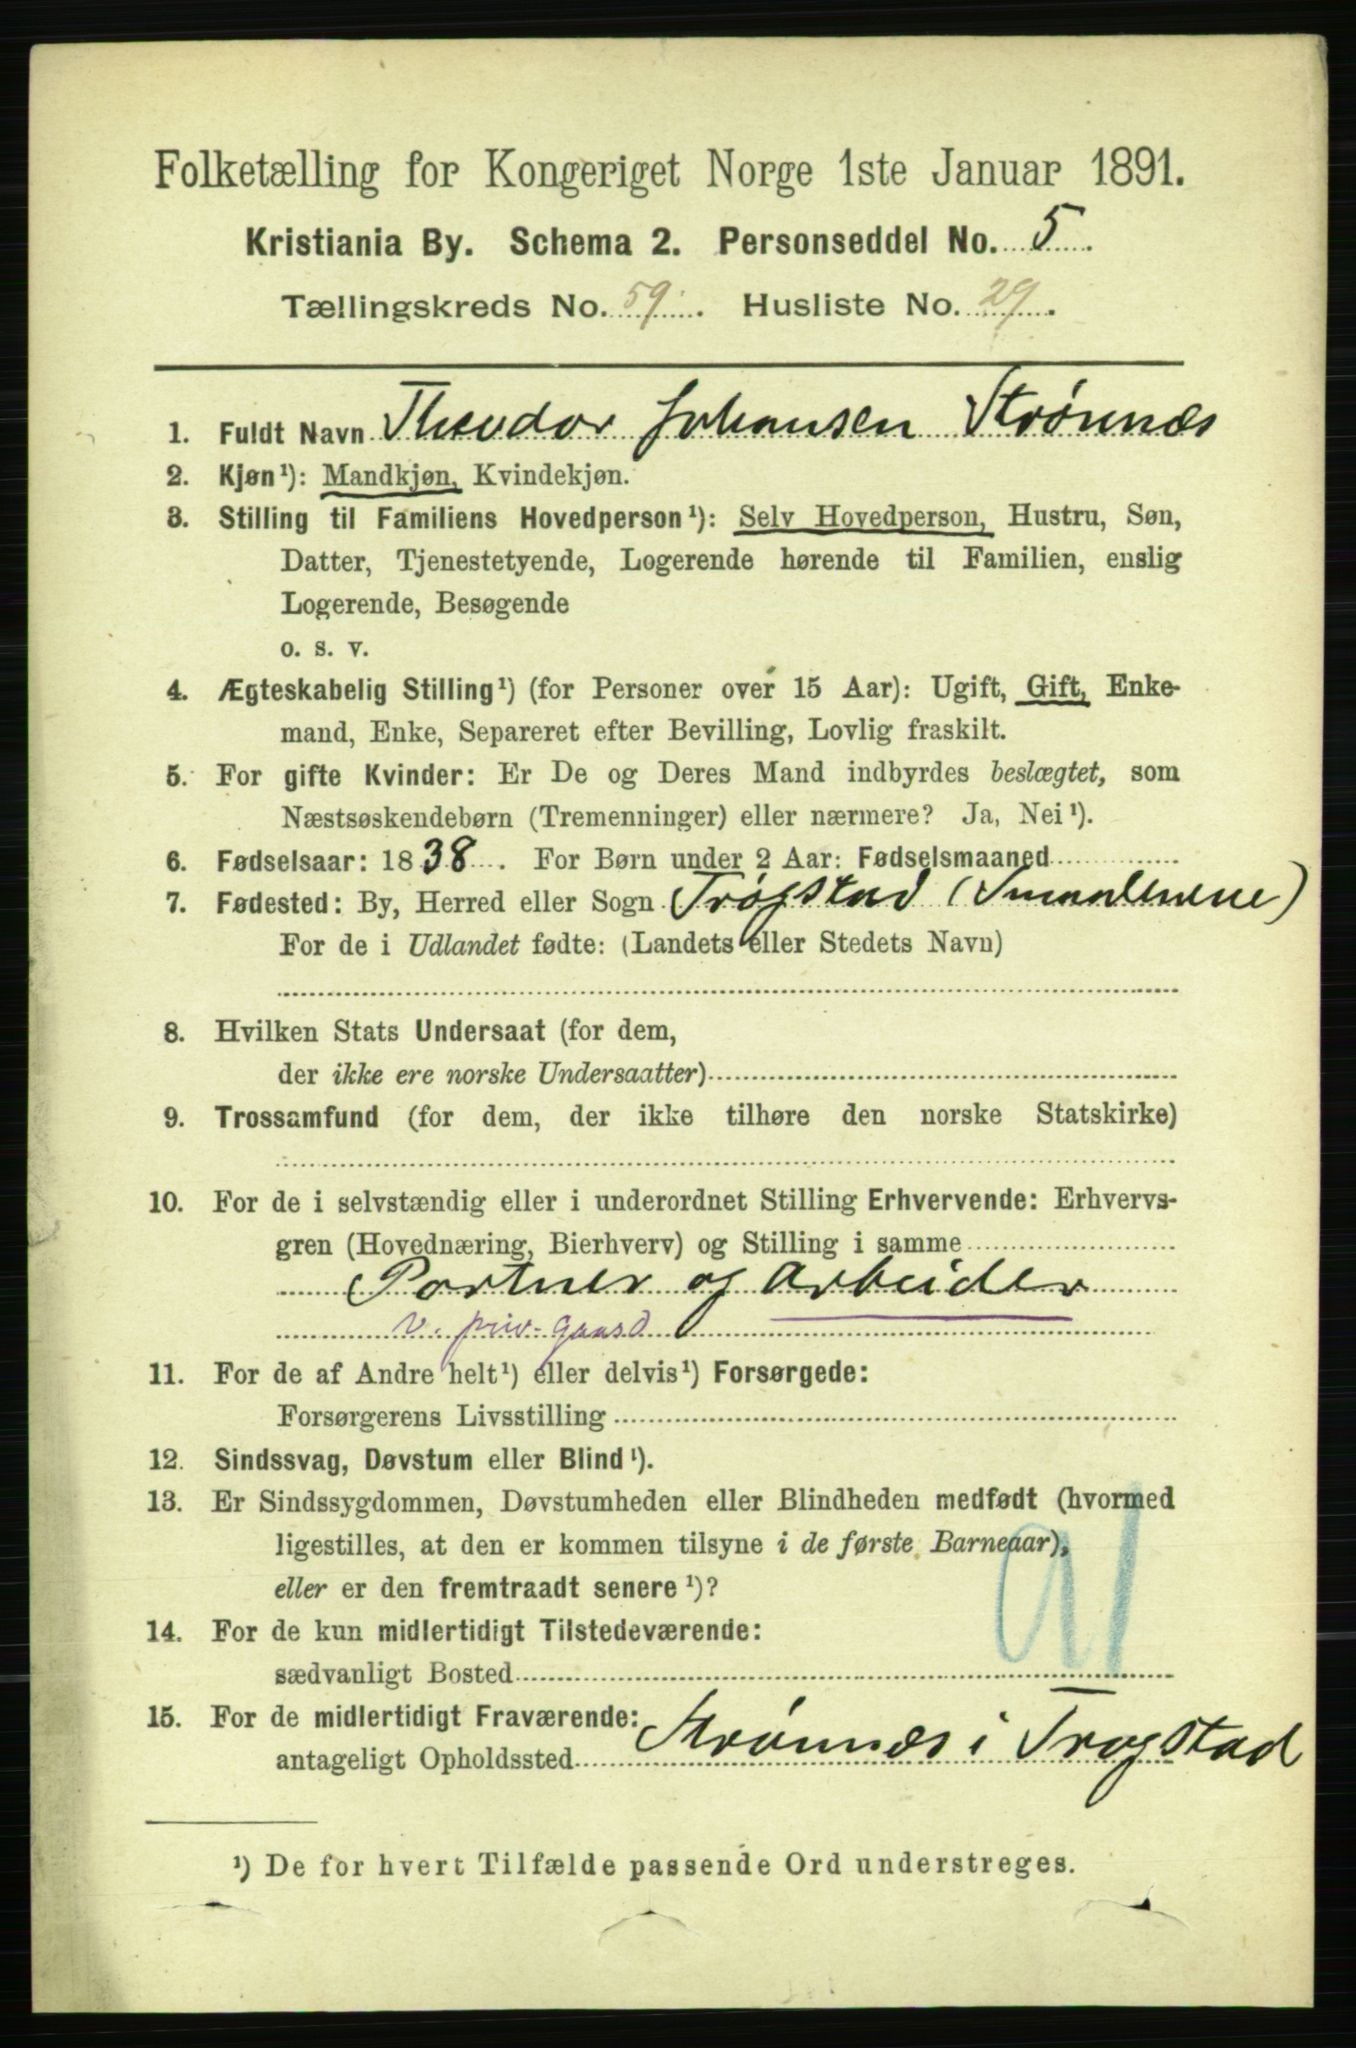 Folketælling for Kongeriget Norge 1ste Januar 1891.
Kristiania By. Schema 2. Personseddel No. 5.
Tællingskreds No. 59. Husliste No. 29.
1. Fuldt Navn Theodor Johansen Strönnæs
2. Kjøn¹): Mandkjøn, Kvindekjøn.
3. Stilling til Familiens Hovedperson¹): Selv Hovedperson, Hustru, Søn,
Datter, Tjenestetyende, Logerende hørende til Familien, enslig
Logerende, Besøgende
o. s. v.
4. Ægteskabelig Stilling¹) (for Personer over 15 Aar): Ugift, Gift, Enke-
mand, Enke, Separeret efter Bevilling, Lovlig fraskilt.
5. For gifte Kvinder: Er De og Deres Mand indbyrdes beslægtet, som
Næstsøskendebørn (Tremenninger) eller nærmere? Ja, Nei¹).
6. Fødselsaar: 1838. For Børn under 2 Aar: Fødselsmaaned
7. Fødested: By, Herred eller Sogn Trögstad (Smaalenene)
For de i Udlandet fødte: (Landets eller Stedets Navn)
8. Hvilken Stats Undersaat (for dem,
der ikke ere norske Undersaatter)
9. Trossamfund (for dem, der ikke tilhøre den norske Statskirke)
10. For de i selvstændig eller i underordnet Stilling Erhvervende: Erhvervs-
gren (Hovednæring, Bierhverv) og Stilling i samme
Portner og Arbeider
v. priv. gaard
11. For de af Andre helt¹) eller delvis¹) Forsørgede:
Forsørgerens Livsstilling
12. Sindssvag, Døvstum eller Blind¹).
13. Er Sindssygdommen, Døvstumheden eller Blindheden medfødt (hvormed
ligestilles, at den er kommen tilsyne i de første Barneaar),
eller er den fremtraadt senere¹)?
91
14. For de kun midlertidigt Tilstedeværende:
sædvanligt Bosted
15. For de midlertidigt Fraværende:
antageligt Opholdssted Strönnæs i Trogstad
¹) De for hvert Tilfælde passende Ord understreges.